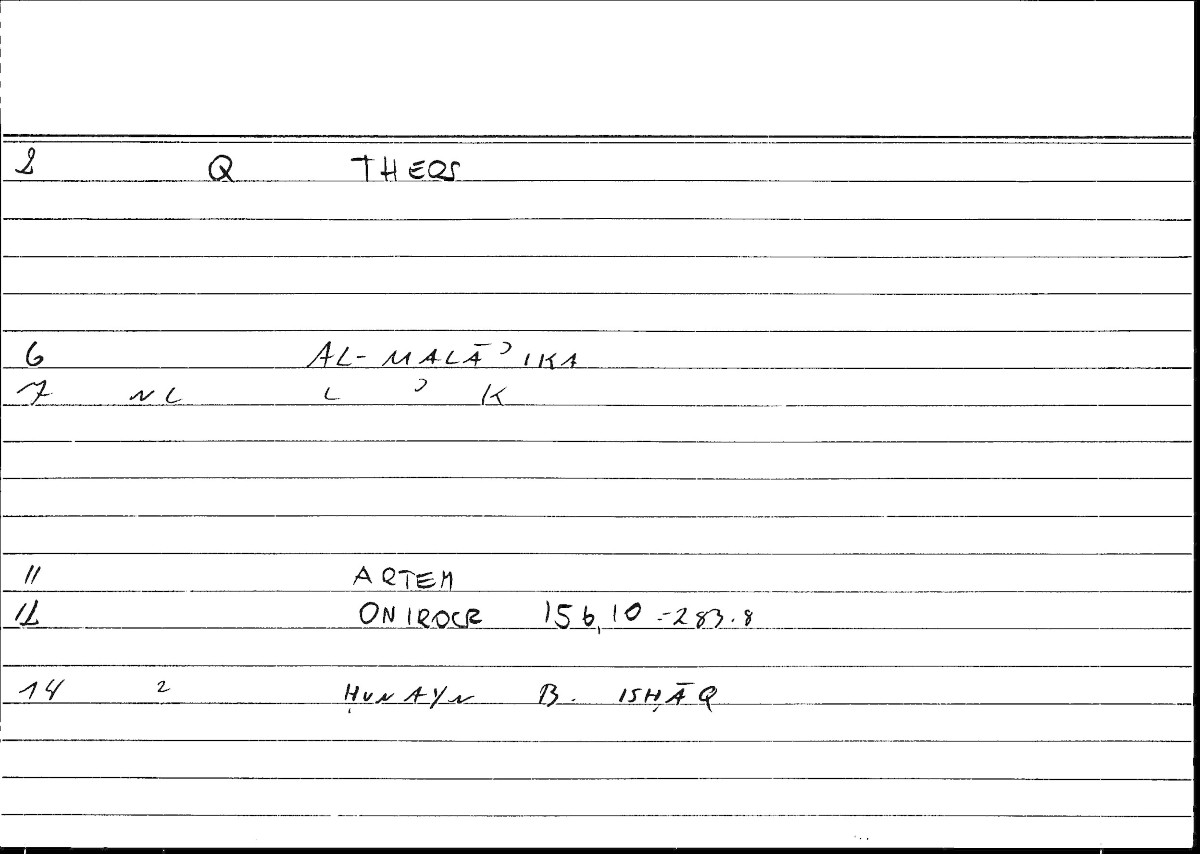 2 Q THEOS
6 AL-MALĀʾIKA
7 NL L ʾ K
11 ARTEM
12 ONIROCR 156,10 = 283.8
14 2 ḤUNAYN B. ISḤĀQ